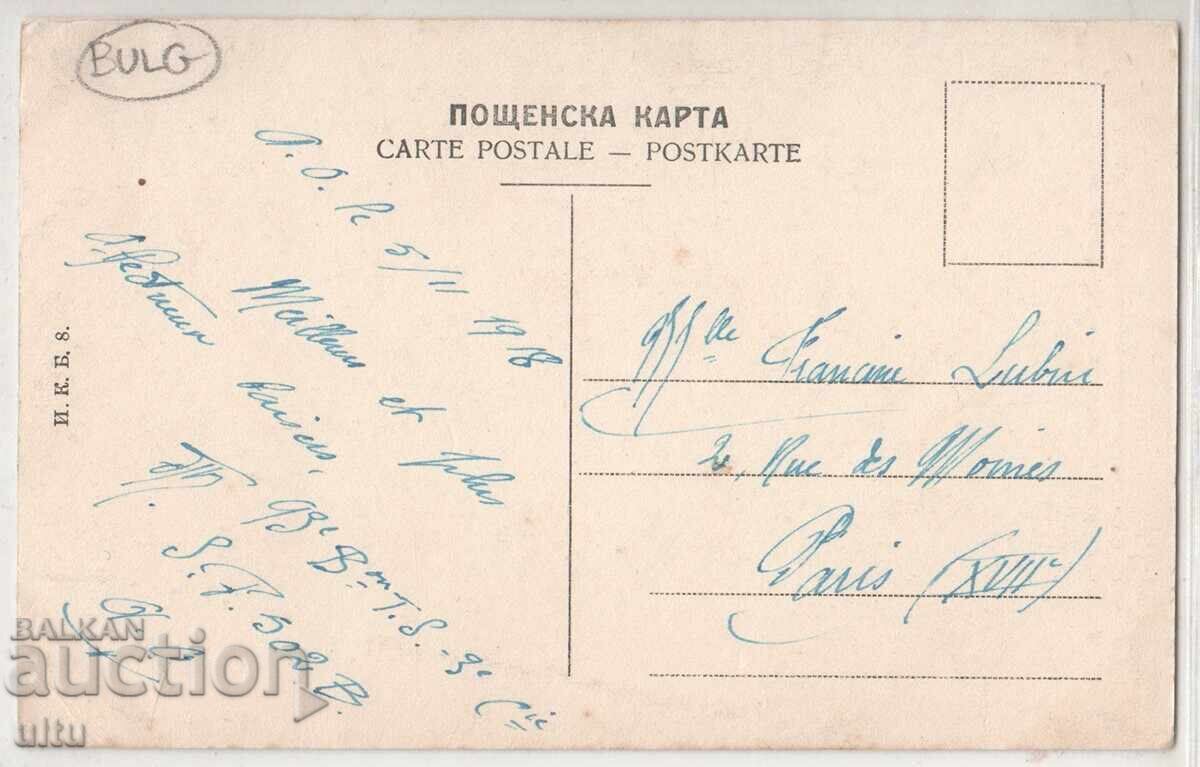 BULG
ПОЩЕНСКА КАРТА
CARTE POSTALE — POSTKARTE
И. К. Б. 8.
5/11 1918
Meilleurs et plus
baisers.
93e Bon T. S. - 3e Cie
S. P. 502 B.
Mlle Francine Lubin
2, Rue des Moines
Paris (XVIIe)
BALKAN
auction
ultu